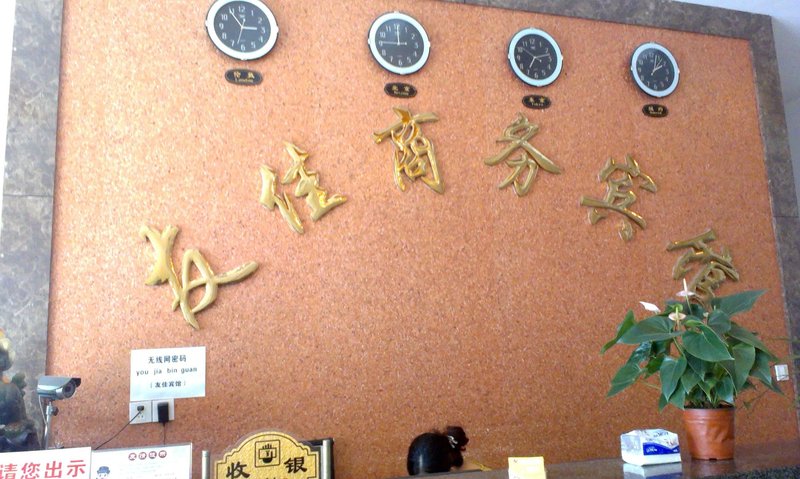 伦敦
London
北京
东京
纽约
友佳商务宾馆
无线网密码
you jia bin guan
(友佳宾馆)
请您出示
收银